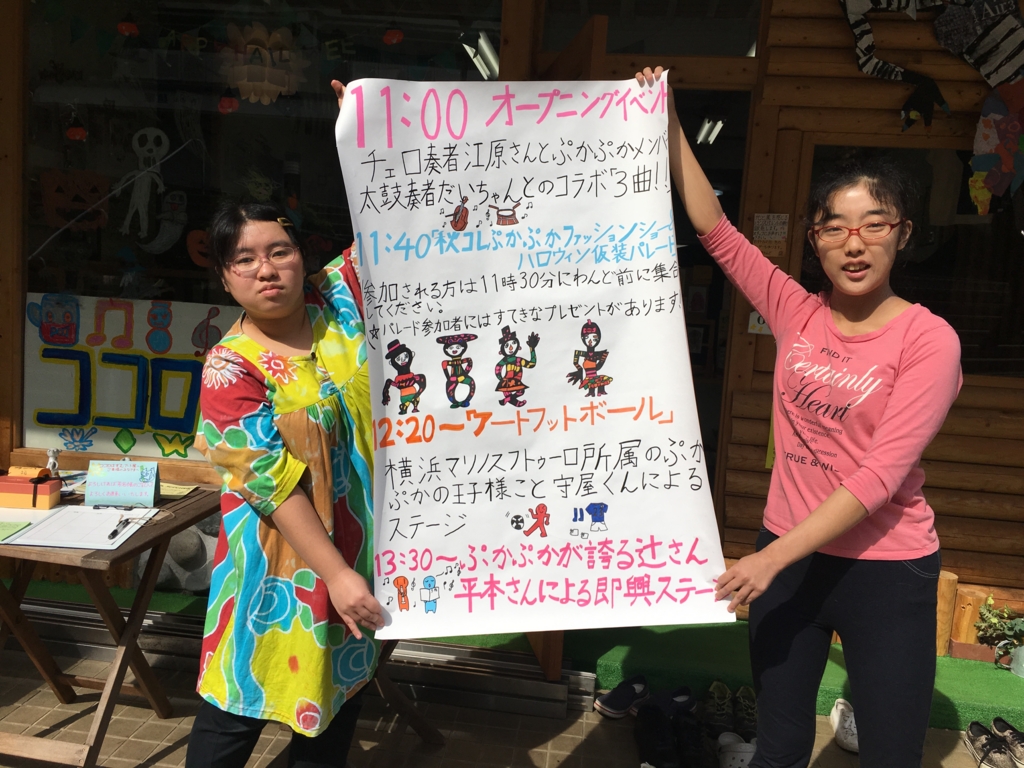 11:00 オープニングイベント
チェロ奏者江原さんとぷかぷかメンバ
太鼓奏者だいちゃんとのコラボ「3曲!!
11:40「秋コレぷかぷかファッションショーと
ハロウィン仮装パレード
参加される方は11時30分にわんど前に集合
してください。
☆パレード参加者にはすてきなプレゼントがあります
12:20〜「アートフットボール」
横浜マリノスフトゥーロ所属のぷか
ぷかの王子様こと守屋くんによる
ステージ
13:30〜ぷかぷかが誇る辻さん
平本さんによる即興ステー
ココロ
FIND IT
Certainly
Heart
TRUE & NI